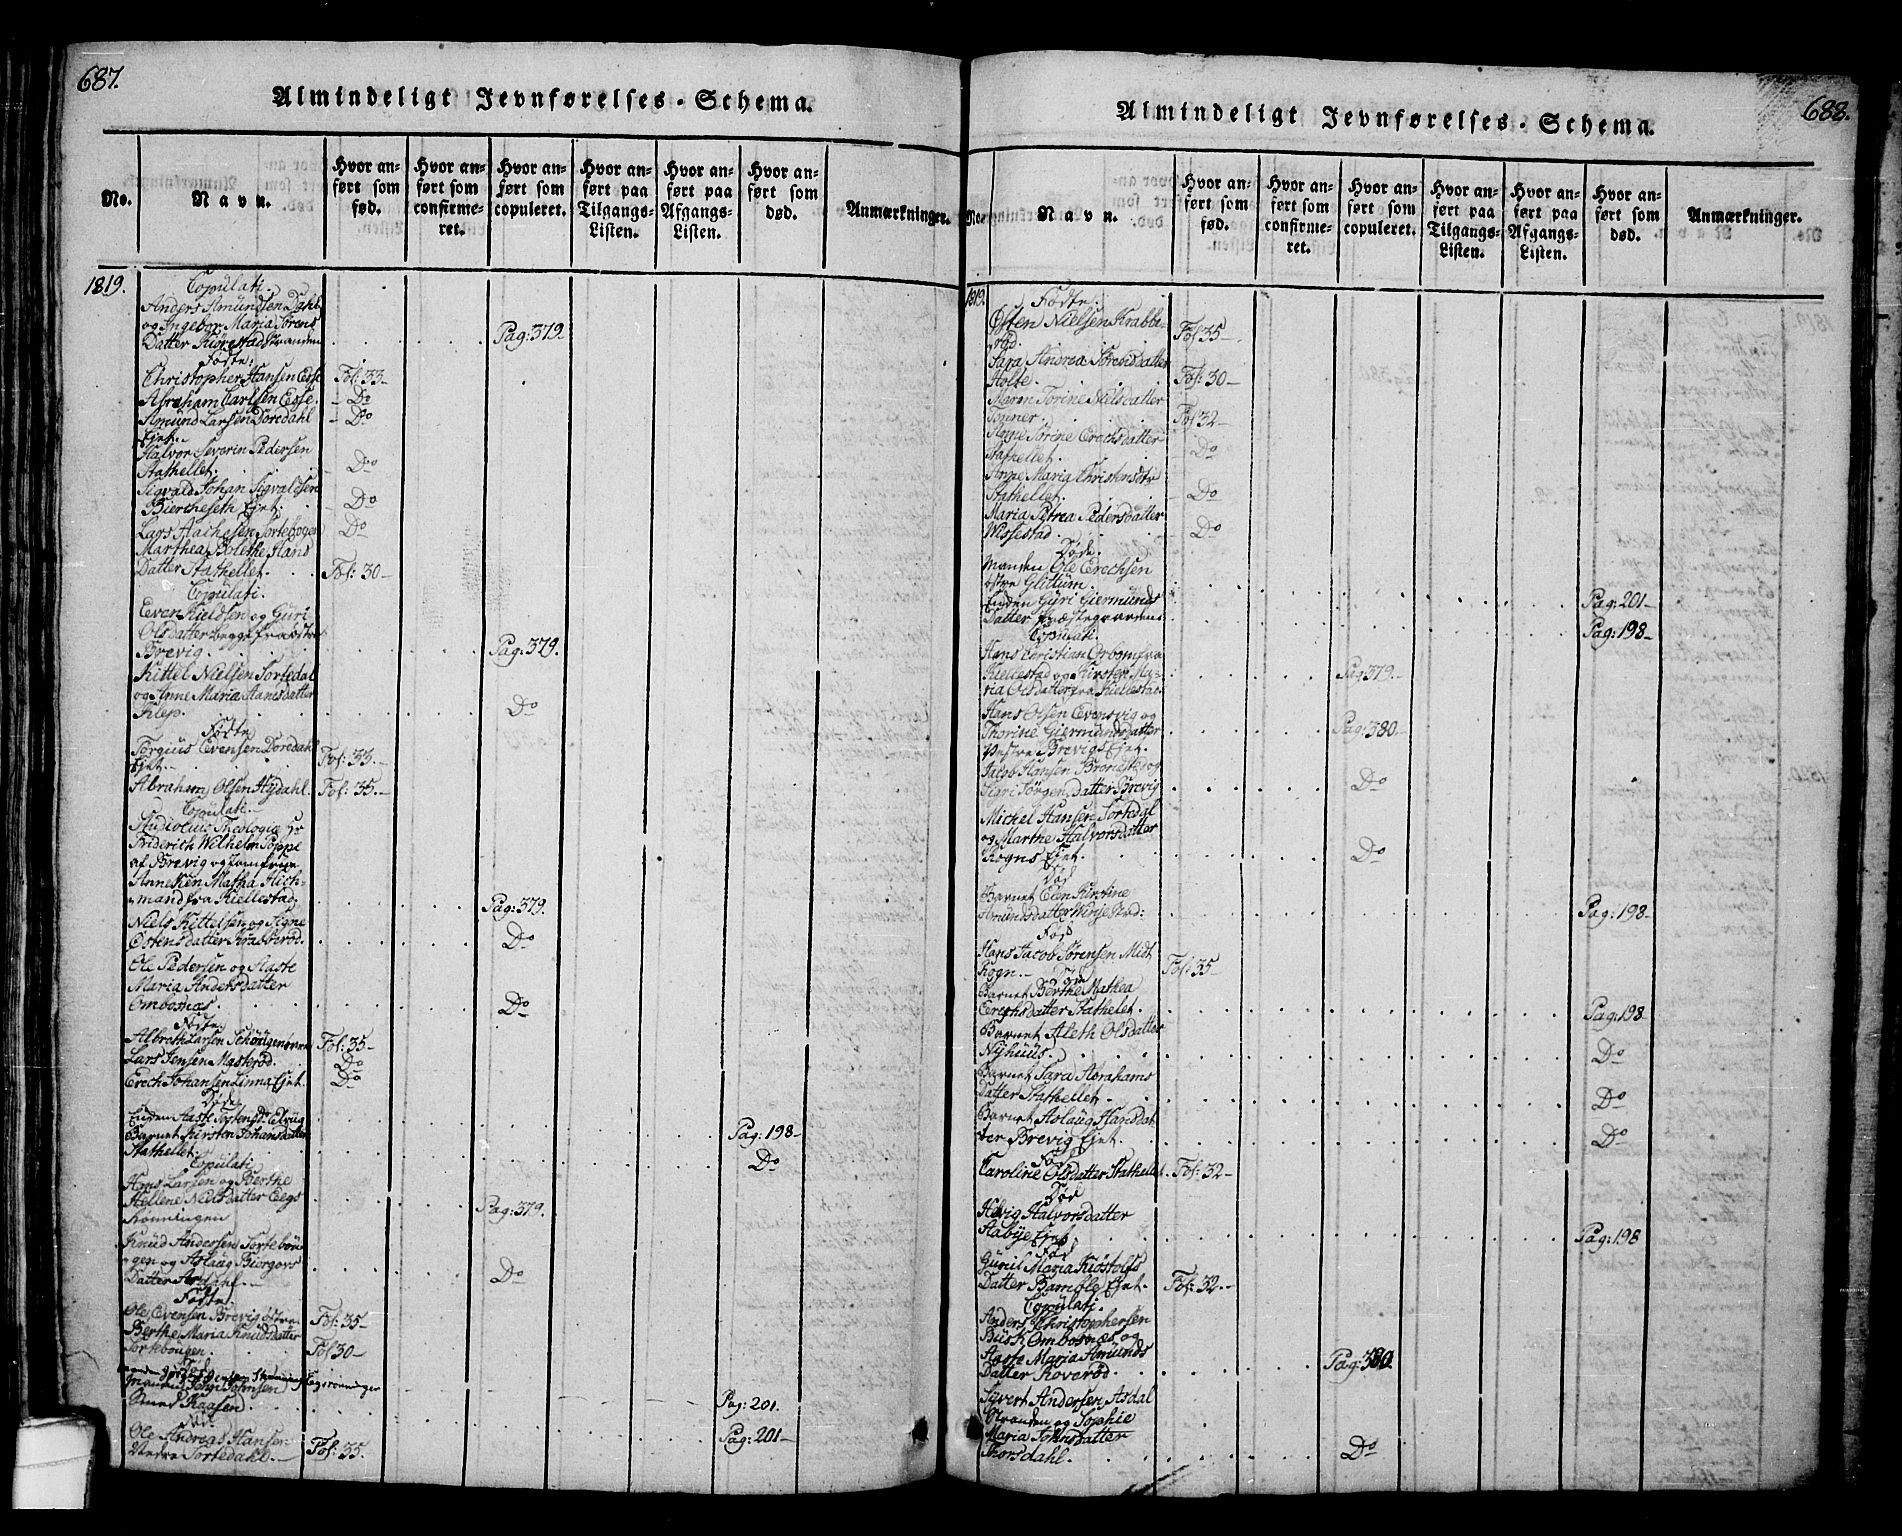 687.
Almindeligt Jevnførelses-Schema.
No.
Navn.
Hvor an-
ført som
fød.
Hvor an-
ført som
confirme-
ret.
Hvor an-
ført som
copuleret.
Hvor an-
ført paa
Tilgangs-
Listen.
Hvor an-
ført paa
Afgangs-
Listen.
Hvor an-
ført som
død.
Anmærkninger.
1819.
Copulati.
Anders Amundsen Dahl
og Ingebor Maria Sørens
Datter Stranden Pag: 379
Fødte.
Christopher Hansen Fol: 33-
Abraham Carlsen - Do
Amund Larsen Dordahl - Do
Ejet.
Halvor Severin Pedersen
Stathellet. - Do
Sigvald Johan Sigvaldsen
Ejet. - Do
Lars Do
Marthea Bolethe Hans
Datter Stathellet. Fol: 30-
Copulati.
Even Kieldsen og Guri
Olsdatter begge fra østre
Brevig. Pag: 379.
Kittel Nielsen Sortedal
og Anne Maria Hansdatter
Klep. Do
Fødte
Torgius Evensen Dordahl
Ejet. Fol: 33.-
Abraham Olsen Hydahl. Fol: 35.-
Copulati.-
Studiosus Theologiæ Hr
Friderich Wilhelm Poppe
af Brevig og Jomfrue
Anneken Matha
mand fra Kiellestad. Pag: 379.
Niels Kittelsen og Signe
Ostensdatter Krabberød. Do
Ole Pedersen og Aaste
Maria Andersdatter
Ombosnæs. Do
Fødte
Albreth Larsen Fol: 35-
Lars Jensen Masterød. Do
Erech Johansen Linna Ejet. Do
Døde
Enken Aaste Pag: 198-
Barnet Kirsten Johansdatter
Stathellet. Do
Copulati
Hans Larsen og Berthe
Hellene Nielsdatter Eegs
Pag: 379.
Knud Andersen Sortebou-
gen og Aslaug Biørgovs
Datter Asdahl. Do
Fødte.
Ole Evensen Brevig østre. Fol: 35-
Berthe Maria Knudsdatter
Sortebougen. Fol 30-
Død
Johnsen
Pag: 201.
Ole Andreas Hansen Pag: 201-
Sortedahl. Fol: 35.
688.
Almindeligt Jevnførelses-Schema.
No.
Navn.
Hvor an-
ført som
fød.
Hvor an-
ført som
confirme-
ret.
Hvor an-
ført som
copuleret.
Hvor an-
ført paa
Tilgangs-
Listen.
Hvor an-
ført paa
Afgangs-
Listen.
Hvor an-
ført som
død.
Anmærkninger.
1819.
Fødte.
Østen Nielsen Krabbe-
rød. Fol 35-
Sara Andrea Sørensdatter
Holte. Fol: 30-
Maren Torine Nielsdatter
Tonner. Fol 32-
Anne Sørine Erechsdatter
Stathellet. Do
Anne Maria
Stathellet. - Do
Maria Petrea Pedersdatter
Wissestad. Do
Døde.
Manden Ole Erechsen
østre Glittum. Pag: 201-
Enken Gyri Giermunds
Datter Præstegaarden. Pag: 198-
Copulati.
Hans Christian fra
Kiellestad og Kirsten Ma-
ria Olsdatter fra Kiellestad. Pag 379.-
Hans Olsen Evensvig og
Thorine Giermundsdatter Pag: 380-
Brevigs Ejet.
Jacob Hansen og
Sigri Jørgensdatter Brevig Do
Michel Hansen Sortedal
og Marthe Halvorsdatter
Rogns Ejet. Do
Død
Barnet Elen Kirstine
Amundsdatter Pag: 198-
Fød
Hans Jacob Sørensen Midt
Rogn.- Fol: 35-
Døde
Barnet Berthe Mathea
Erechsdatter Stathelet. Pag: 198
Barnet Aleth Olsdatter
Nyhuus. Do
Barnet Sara Abrahams
Datter Stathellet. Do
Barnet Aslaug Hansdat
ter Brevig Ejet. Do
Fød
Caroline Olsdatter Stathellet. Fol: 32-
Død
Hedvig Halvorsdatter
Aabye Ejet. Pag: 198
Fød
Gunil Maria
Datter Bamble Ejet. Fol: 32.-
Copulati.
Anders Christophersen
Busk Ombosnæs og
Aaste Maria Amunds
Datter Roverød Pag: 380.
Syvert Andersen Asdal
Stranden og Sophie
Maria Johnsdatter
Thorsdahl. Do